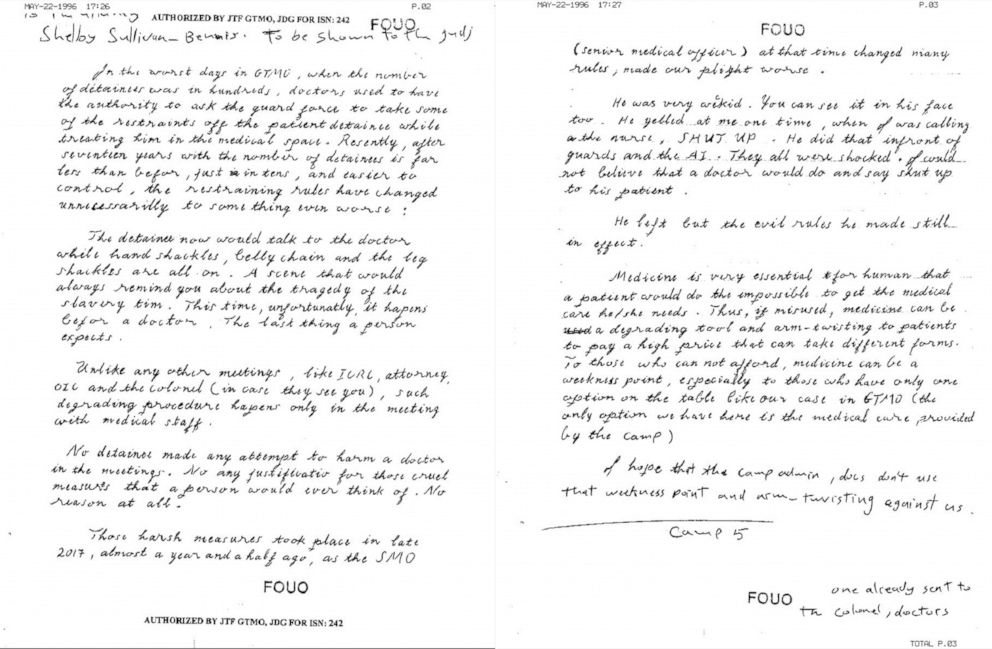 MAY-22-1996 17:26 P.02
AUTHORIZED BY JTF GTMO, JDG FOR ISN: 242
FOUO
Shelby Sullivan-Bennis. To be shown to the judj
In the worst days in GTMO, when the number
of detainees was in hundreds, doctors used to have
the authority to ask the guard force to take some
of the restraints off the patient detainee while
treating him in the medical space. Recently, after
seventeen years with the nomber of detainees is far
less than befor, just in tens, and easier to
control, the restraining rules have changed
unnecessarilly to some thing even worse :
The detainee now would talk to the doctor
while hand shackles, belly chain and the leg
shackles are all on. A scene that would
always remind you about the tragedy of the
slavery tim. This time, unfortunatly, it hapens
befor a doctor. The last thing a person
expects.
Unlike any other meetings, like ICRC, attorney,
OIC and the colonel (in case they see you), such
degrading procedure happens only in the meeting
with medical staff.
No detainee made any attempt to harm a doctor
in the meetings. No any justificatio for those cruel
measures that a person would ever think of. No
reason at all.
Those harsh measures took place in late
2017, almost a year and a half ago, as the SMO
FOUO
AUTHORIZED BY JTF GTMO, JDG FOR ISN: 242
MAY-22-1996 17:27 P.03
FOUO
(senior medical officer) at that time changed many
rules, made our plight worse.
He was very wekid. You can see it in his face
too. He yelled at me one time, when I was calling
the nurse, SHUT UP. He did that infront of
guards and the AI. They all were shocked. I could
not believe that a doctor would do and say shut up
to his patient.
He left but the evil rules he made still
in effect.
Medicine is very essential for human that
a patient would do the impossible to get the medical
care he/she needs. Thus, if misused, medicine can be
a degrading tool and arm-twisting to patients
to pay a high price that can take different forms.
To those who can not afford, medicine can be a
weekness point, especially to those who have only one
option on the table like our case in GTMO (the
only option we have here is the medical care provided
by the camp)
I hope that the camp admin, docs don't use
that weekness point and arm-twisting against us.
Camp 5
FOUO
one already sent to
the colonel, doctors
TOTAL P.03